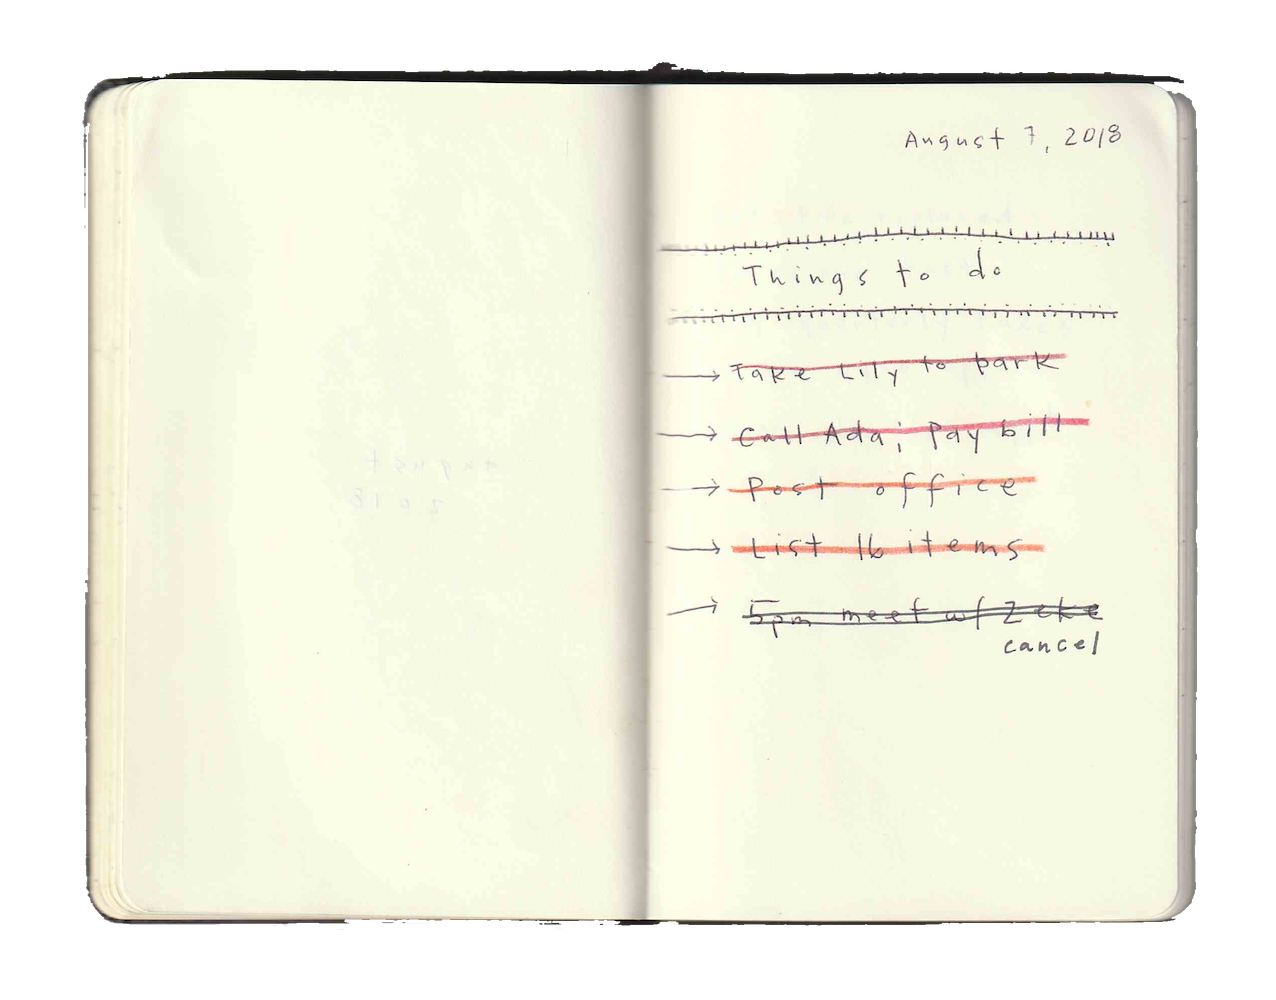 August 7, 2018
Things to do
Take Lily to park
Call Ada; Pay bill
Post office
List 16 items
5pm meet w/ Zeke
cancel
august
2018